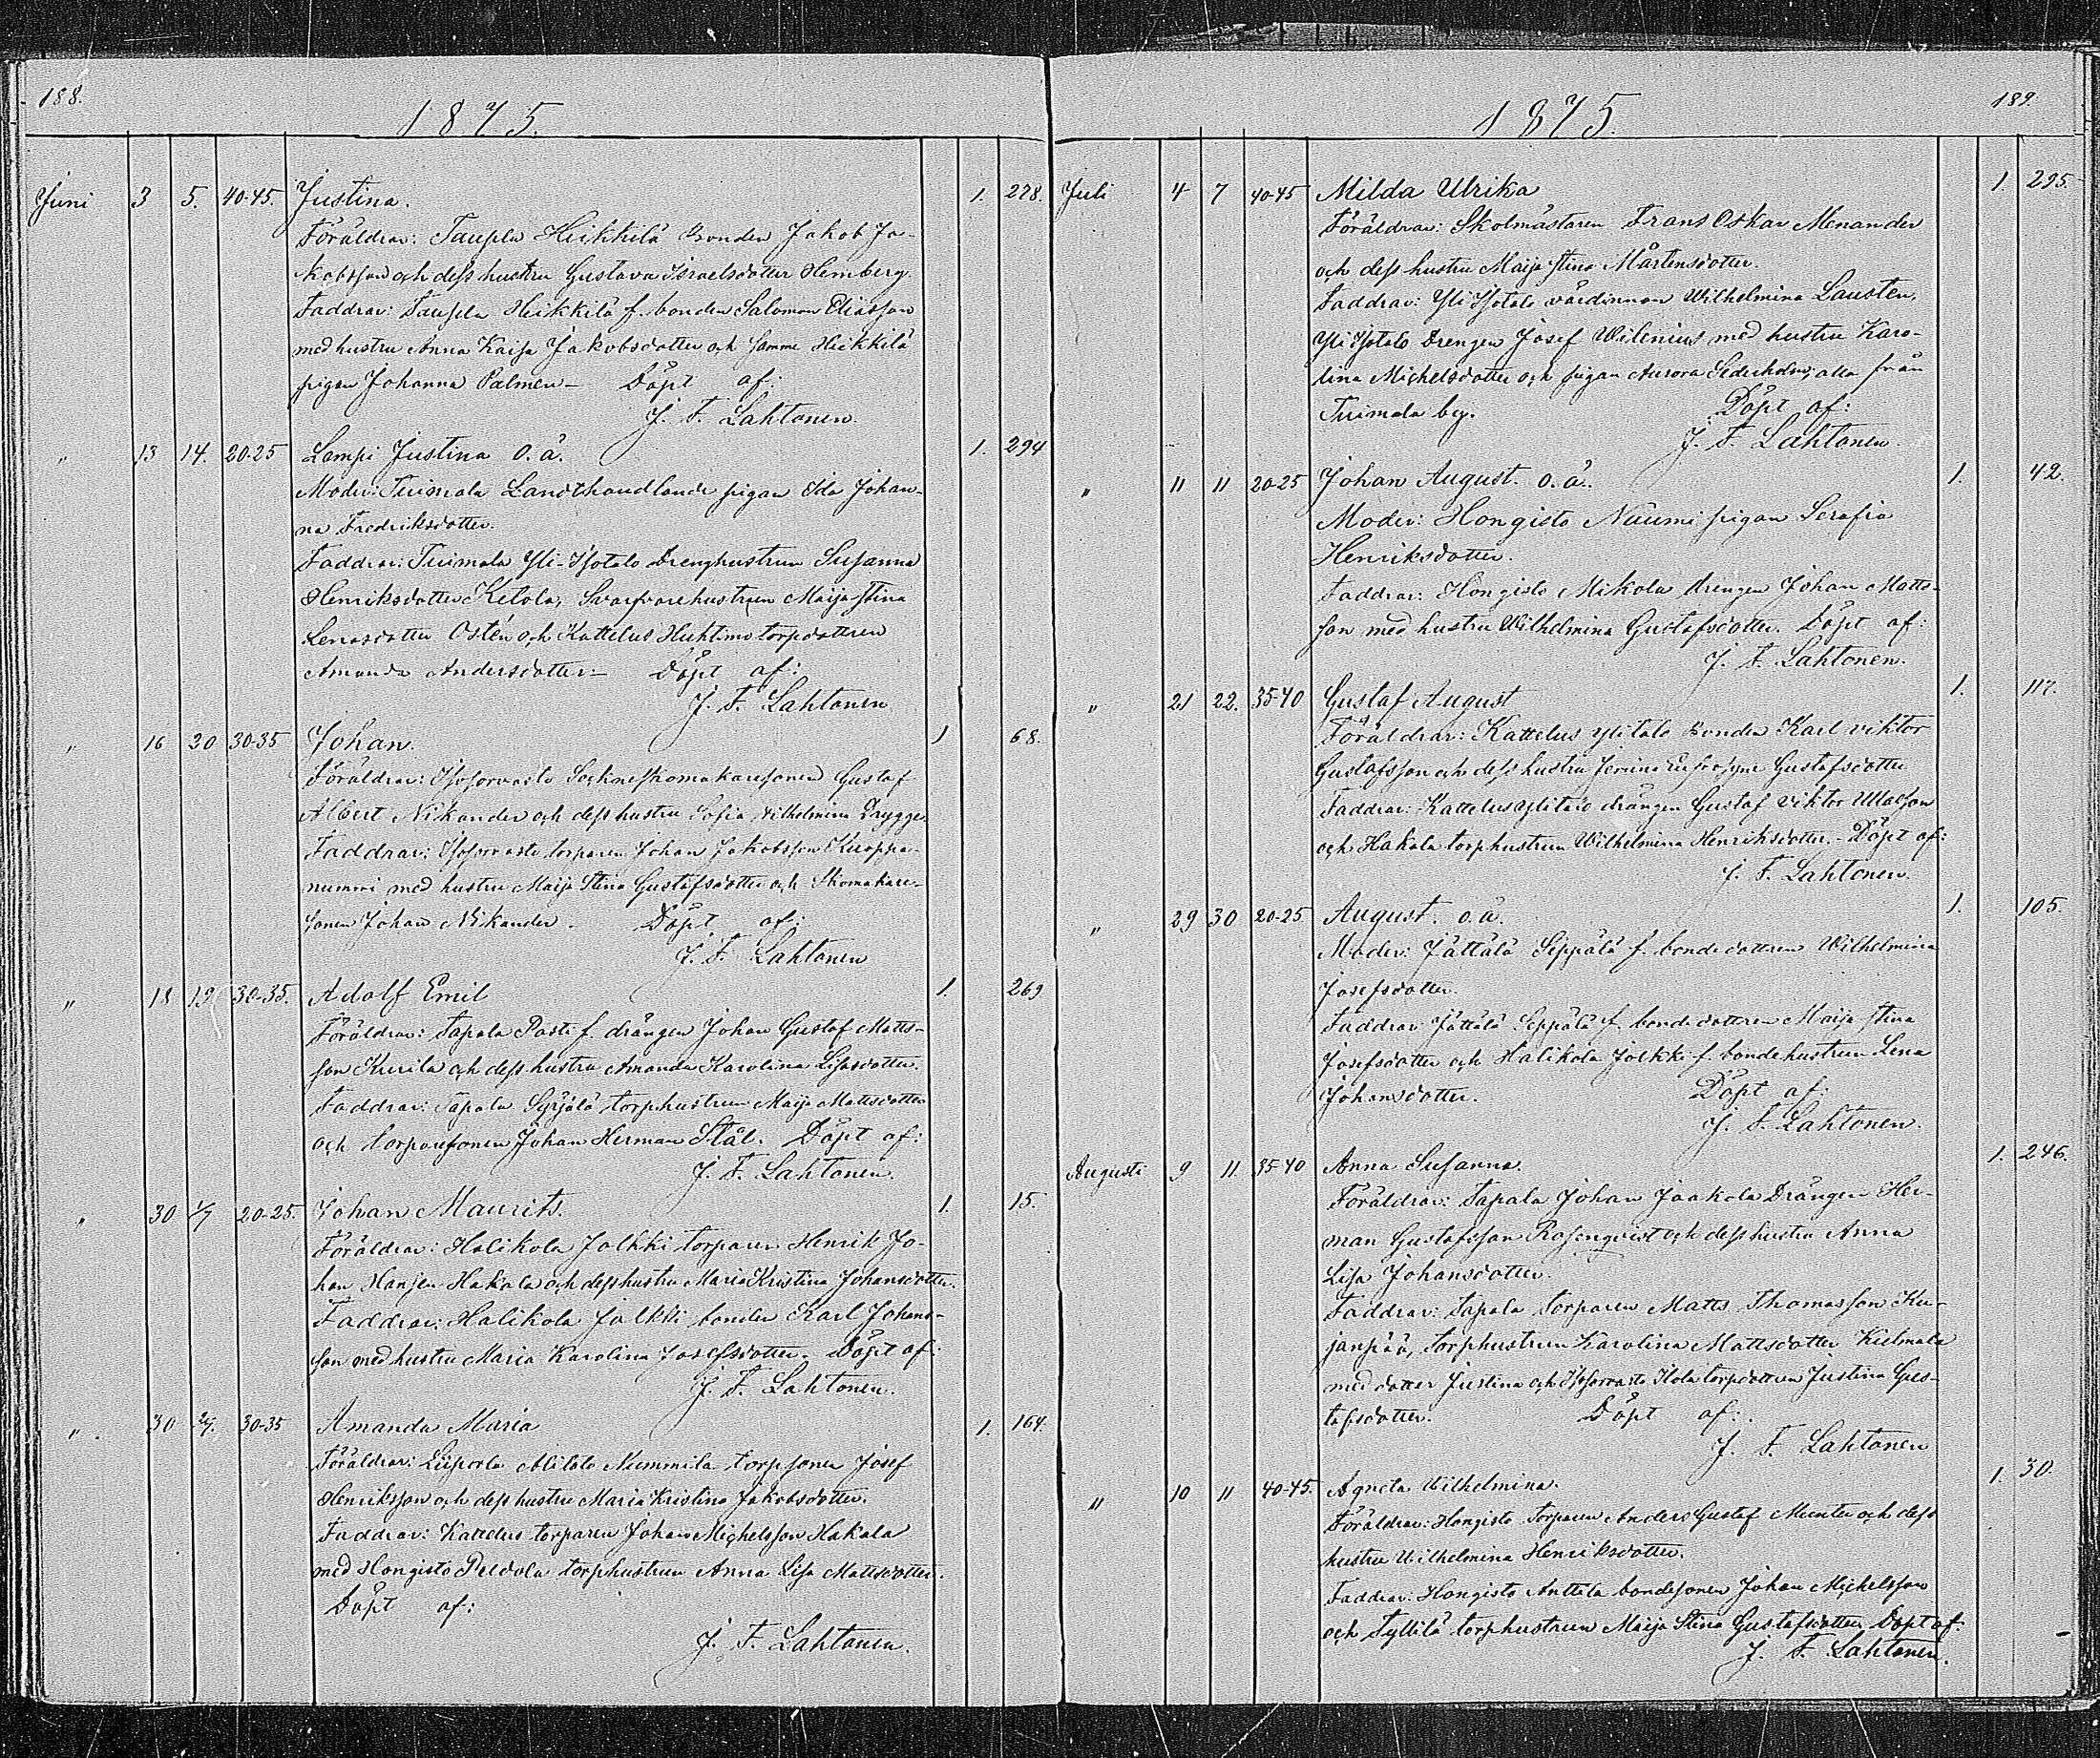 188.
1875.
Juni 3 5. 40-45. Justina. 1. 278.
Föräldrar: Taipla Heikkilä Bonden Jakob Ja-
kobsson och dess hustru Gustava Israelsdotter Hemberg.
Faddrar: Heikkilä f. bonden Salomon Eliasson
med hustru Anna Kaisa Jakobsdotter och samma Heikkilä
pigan Johanna Palmen - Döpt af:
J. F. Lahtonen.
" 13 14. 20-25 Lempi Justina o. ä. 1. 294
Moder: Tuimala Landthandlande pigan Ida Johan-
na Fredriksdotter.
Faddrar: Tuimala Yli-Isotalo Drenghustrun Susanna
Henriksdotter Ketola, Svarfvarehustrun Maija Stina
Osten och Kattelus Huhtimo torpdottren
Amanda Andersdotter - Döpt af:
J. F. Lahtonen
" 16 20 30-35 Johan. 1 68.
Föräldrar: Isosorvasto Sockneskomakaresonen Gustaf
Albert Nikander och dess hustru Sofia Vilhelmina Trygge.
Faddrar: Isosorvasto torparen Johan Jakobsson Kuoppa-
nummi med hustru Maija Stina Gustafsdotter och Skomakare-
sonen Johan Nikander. Döpt af:
J. F. Lahtonen
" 18 19 30-35. Adolf Emil 1. 269
Föräldrar: Tapala Pasti f. drängen Johan Gustaf Matts-
son Kurila och dess hustru Amanda Karolina Lisasdotter.
Faddrar: Tapala Syrjälä torphustrun Maija Mattsdotter
och torparesonen Johan Herman Stål. Döpt af:
J. F. Lahtonen.
" 30 1/7 20-25. Johan Maurits. 1. 15.
Föräldrar: Halikola Jalkki torparen Henrik Jo-
han Hansen Hakala och dess hustru Maria Kristina Johansdotter.
Faddrar: Halikola Jalkki bonden Karl Johans-
son med hustru Maria Karolina Josefsdotter. Döpt af:
J. F. Lahtonen.
" 30 2/7. 30-35 Amanda Maria 1. 164.
Föräldrar: Alitalo Nummila torpsonen Josef
Henriksson och dess hustru Maria Kristina Jakobsdotter.
Faddrar: Kattelus torparen Johan Michelsson Hakala
med Hongisto Peldola torphustrun Anna Lisa Mattsdotter.
Döpt af:
J. F. Lahtonen.
189.
1875.
Juli 4 7 40-45 Milda Ulrika 1. 295.
Föräldrar: Skolmästaren Frans Oskar Menander
och dess hustru Maija Stina Mårtensdotter.
Faddrar: Yli Isotalo värdinnan Wilhelmina Lausten,
Yli Isotalo Drengen Josef Wilenius med hustru Karo-
lina Michelsdotter och pigan Aurora Sederholm, alla från
Tuimala by. Döpt af:
J. F. Lahtonen.
" 11 11 20-25 Johan August. o. ä. 1. 42.
Moder: Hongisto Nuumi pigan Serafia
Henriksdotter.
Faddrar: Hongisto Mikola drengen Johan Matts-
son med hustru Wilhelmina Gustafsdotter. Döpt af:
J. F. Lahtonen.
" 21 22. 35-40 Gustaf August 1. 117.
Föräldrar: Kattelus Ylitalo Bonden Karl Viktor
Gustafsson och dess hustru Gustafsdotter
Faddrar: Kattelus Ylitalo drängen Gustaf Viktor Ullasson
och Hakala torphustrun Wilhelmina Henriksdotter. - Döpt af:
J. F. Lahtonen.
" 29 30 20-25. August. o. ä. 1. 105.
Moder: Jättälä Seppälä f. bondedottren Wilhelmina
Josefsdotter.
Faddrar: Jättälä Seppälä f. bondedottren Maija Stina
Josefsdotter och Halikola Jalkki f. bondehustrun Lena
Johansdotter. Döpt af:
J. F. Lahtonen.
Augusti 9 11. 35-40 Anna Susanna. 1. 246.
Föräldrar: Tapala Johan Jaakola Drängen Her-
man Gustafsson Rosenqvist och dess hustru Anna
Lisa Johansdotter.
Faddrar: Tapala torparen Matts Thomasson Ku-
janpää, torphustrun Karolina Mattsdotter Kulmala
med dotter Justina och Isosorvasto torpdottren Justina Gus-
tafsdotter. Döpt af:
J. F. Lahtonen
" 10 11 40-45. Agneta Wilhelmina. 1. 30.
Föräldrar: Hongisto torparen Anders Gustaf Munter och dess
hustru Wilhelmina Henriksdotter.
Faddrar: Hongisto Anttila bondesonen Johan Michelsson
och Tyllilä torphustrun Maija Stina Gustafsdotter. Döpt af:
J. F. Lahtonen.